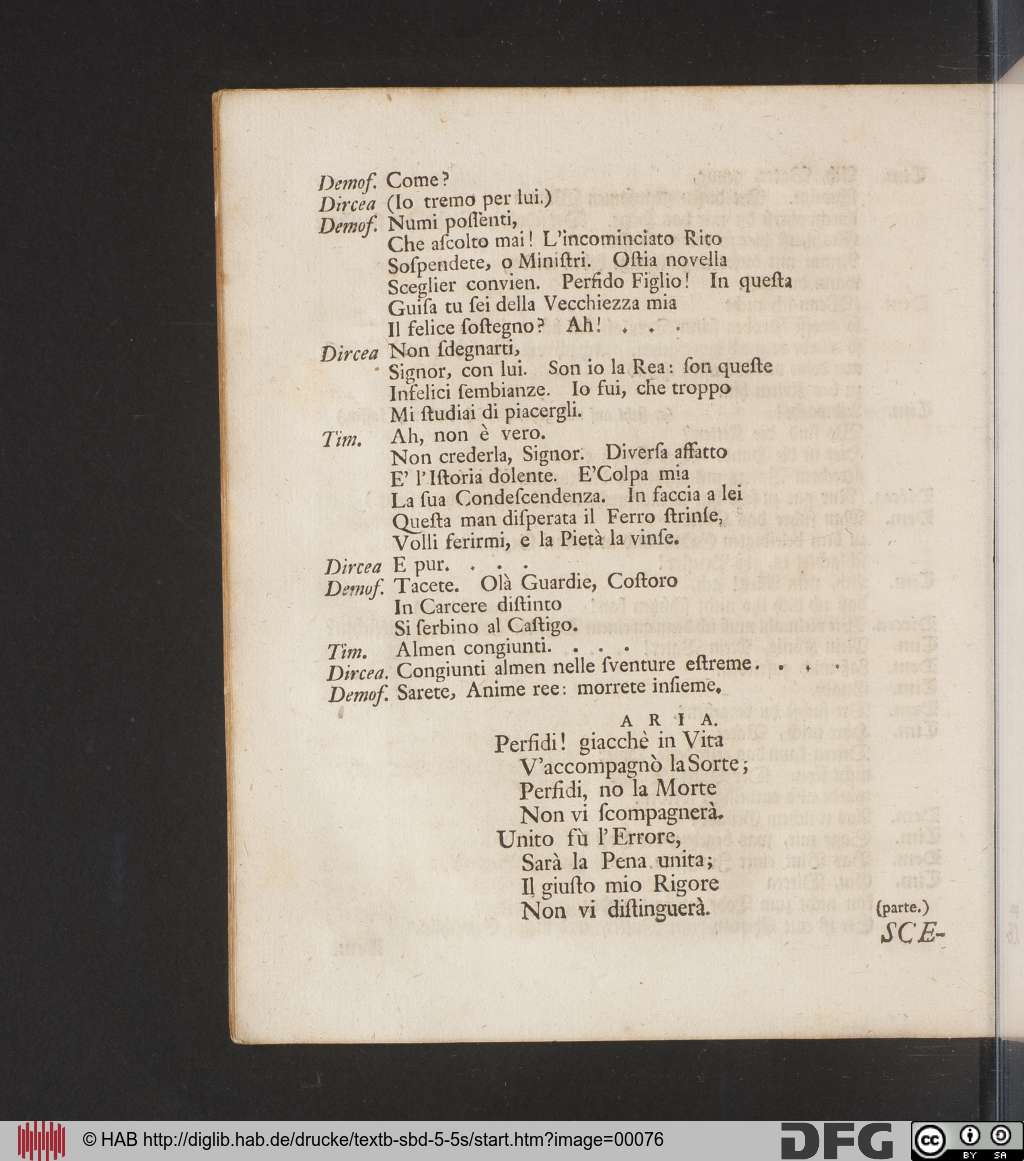 Demof. Come?
Dircea (Io tremo per lui.)
Demof. Numi poſſenti,
Che aſcolto mai! L'incominciato Rito
Soſpendete, o Miniſtri. Oſtia novella
Sceglier convien. Perfido Figlio! In queſta
Guiſa tu ſei della Vecchiezza mia
Il felice ſoſtegno? Ah! . . .
Dircea Non ſdegnarti,
Signor, con lui. Son io la Rea: ſon queſte
Infelici ſembianze. Io fui, che troppo
Mi ſtudiai di piacergli.
Tim. Ah, non è vero.
Non crederla, Signor. Diverſa affatto
E' l'Iſtoria dolente. E'Colpa mia
La ſua Condeſcendenza. In faccia a lei
Queſta man diſperata il Ferro ſtrinſe,
Volli ferirmi, e la Pietà la vinſe.
Dircea E pur. . . .
Demof. Tacete. Olà Guardie, Coſtoro
In Carcere diſtinto
Si ſerbino al Caſtigo.
Tim. Almen congiunti. . . .
Dircea. Congiunti almen nelle ſventure eſtreme. . . .
Demof. Sarete, Anime ree: morrete inſieme.
ARIA.
Perfidi! giacchè in Vita
V'accompagnò la Sorte;
Perfidi, no la Morte
Non vi ſcompagnerà.
Unito fù l'Errore,
Sarà la Pena unita;
Il giuſto mio Rigore
Non vi diſtinguerà. (parte.)
SCE-
© HAB http://diglib.hab.de/drucke/textb-sbd-5-5s/start.htm?image=00076
DFG
cc
BY SA